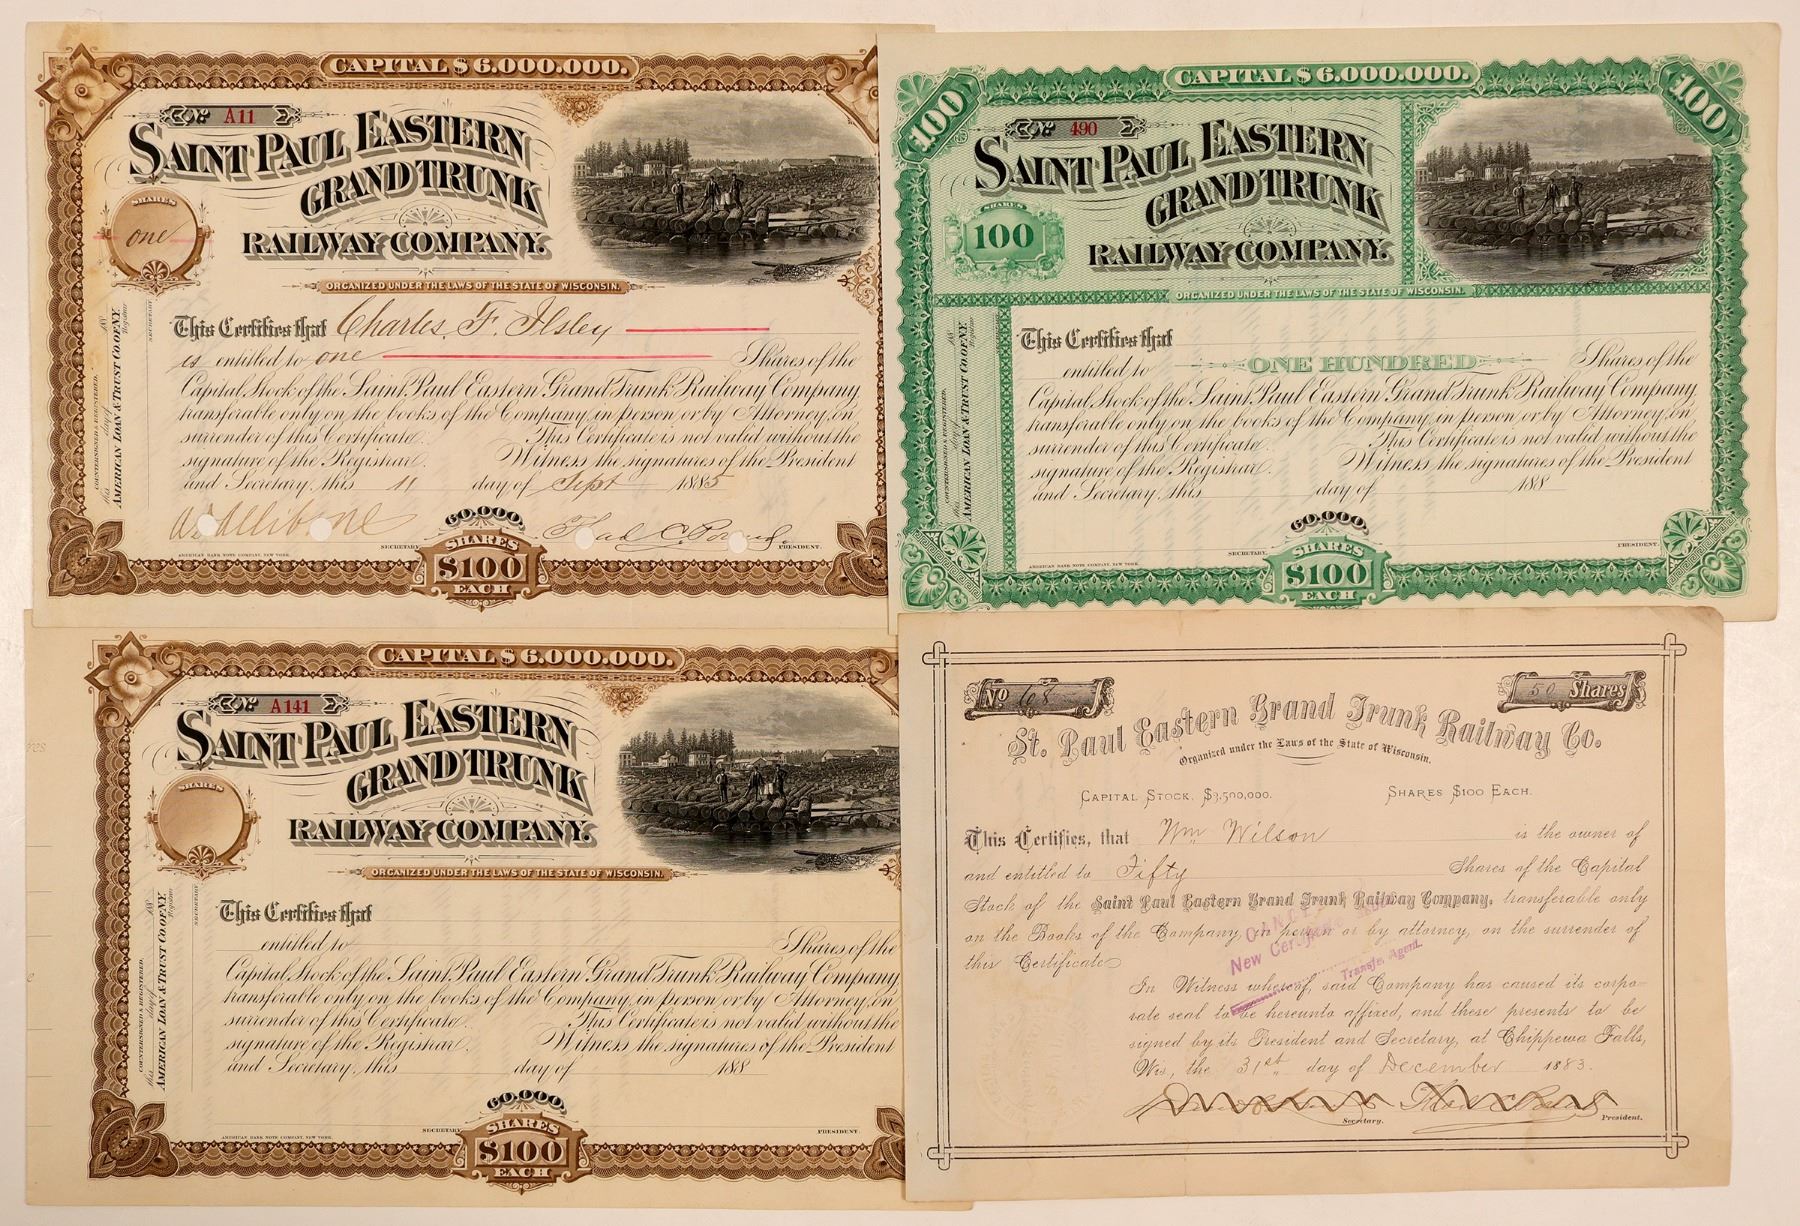 CAPITAL $6.000.000.
No A11
SAINT PAUL EASTERN
GRAND TRUNK
RAILWAY COMPANY.
SHARES
one
ORGANIZED UNDER THE LAWS OF THE STATE OF WISCONSIN.
This Certifies that Charles. F. Ilsley
is entitled to one Shares of the
Capital Stock of the Saint Paul Eastern Grand Trunk Railway Company
transferable only on the books of the Company, in person or by Attorney, on
surrender of this Certificate. This Certificate is not valid without the
signature of the Registrar. Witness the signatures of the President
and Secretary, this 11 day of Sept 1885
SECRETARY. Thad C. Pound. PRESIDENT.
60.000.
SHARES
$100
EACH
AMERICAN BANK NOTE COMPANY, NEW YORK.
COUNTERSIGNED & REGISTERED.
this day of 188
AMERICAN LOAN & TRUST CO. OF N.Y.
Registrar
SECRETARY
CAPITAL $6.000.000.
100
100
No 490
SAINT PAUL EASTERN
GRAND TRUNK
RAILWAY COMPANY.
SHARES
100
ORGANIZED UNDER THE LAWS OF THE STATE OF WISCONSIN.
This Certifies that
entitled to ONE HUNDRED Shares of the
Capital Stock of the Saint Paul Eastern Grand Trunk Railway Company
transferable only on the books of the Company, in person or by Attorney, on
surrender of this Certificate. This Certificate is not valid without the
signature of the Registrar. Witness the signatures of the President
and Secretary, this day of 188
SECRETARY. PRESIDENT.
60.000.
SHARES
$100
EACH
AMERICAN BANK NOTE COMPANY, NEW YORK.
COUNTERSIGNED & REGISTERED.
this day of 188
AMERICAN LOAN & TRUST CO. OF N.Y.
Registrar
SECRETARY
CAPITAL $6.000.000.
No A141
SAINT PAUL EASTERN
GRAND TRUNK
RAILWAY COMPANY.
SHARES
ORGANIZED UNDER THE LAWS OF THE STATE OF WISCONSIN.
This Certifies that
entitled to Shares of the
Capital Stock of the Saint Paul Eastern Grand Trunk Railway Company
transferable only on the books of the Company, in person or by Attorney, on
surrender of this Certificate. This Certificate is not valid without the
signature of the Registrar. Witness the signatures of the President
and Secretary, this day of 188
SECRETARY. PRESIDENT.
60.000.
SHARES
$100
EACH
AMERICAN BANK NOTE COMPANY, NEW YORK.
COUNTERSIGNED & REGISTERED.
this day of 188
AMERICAN LOAN & TRUST CO. OF N.Y.
Registrar
SECRETARY
No 68 50 Shares
St. Paul Eastern Grand Trunk Railway Co.
Organized under the Laws of the State of Wisconsin.
CAPITAL STOCK, $3,500,000. SHARES $100 EACH.
This Certifies, that Wm Wilson is the owner of
and entitled to Fifty Shares of the Capital
Stock of the Saint Paul Eastern Grand Trunk Railway Company, transferable only
on the Books of the Company, in person or by attorney, on the surrender of
this Certificate
New Certificate
Transfer Agent.
In Witness whereof, said Company has caused its corpo-
rate seal to be hereunto affixed, and these presents to be
signed by its President and Secretary, at Chippewa Falls,
Wis, the 31st day of December 1883.
Secretary. President.